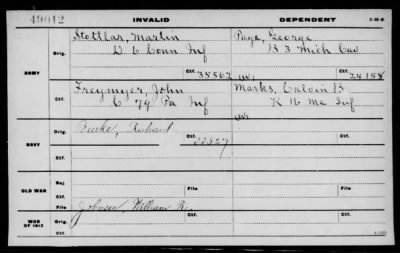 49012 INVALID DEPENDENT
Stottlar, Martin Page, George
Orig. D 6 Conn Inf B 3 Mich Cav
ARMY Ctf. 35562 Ctf. 24158
Freymyer, John Marks, Calvin B
Ctf. C 79 Pa Inf K 16 Me Inf
Burke, Richard
Orig. Ctf.
NAVY
Ctf.
Rej.
OLD WAR
Ctf. File File
Johnson, William R.
WAR OF 1812 Orig. Ctf. Ctf.